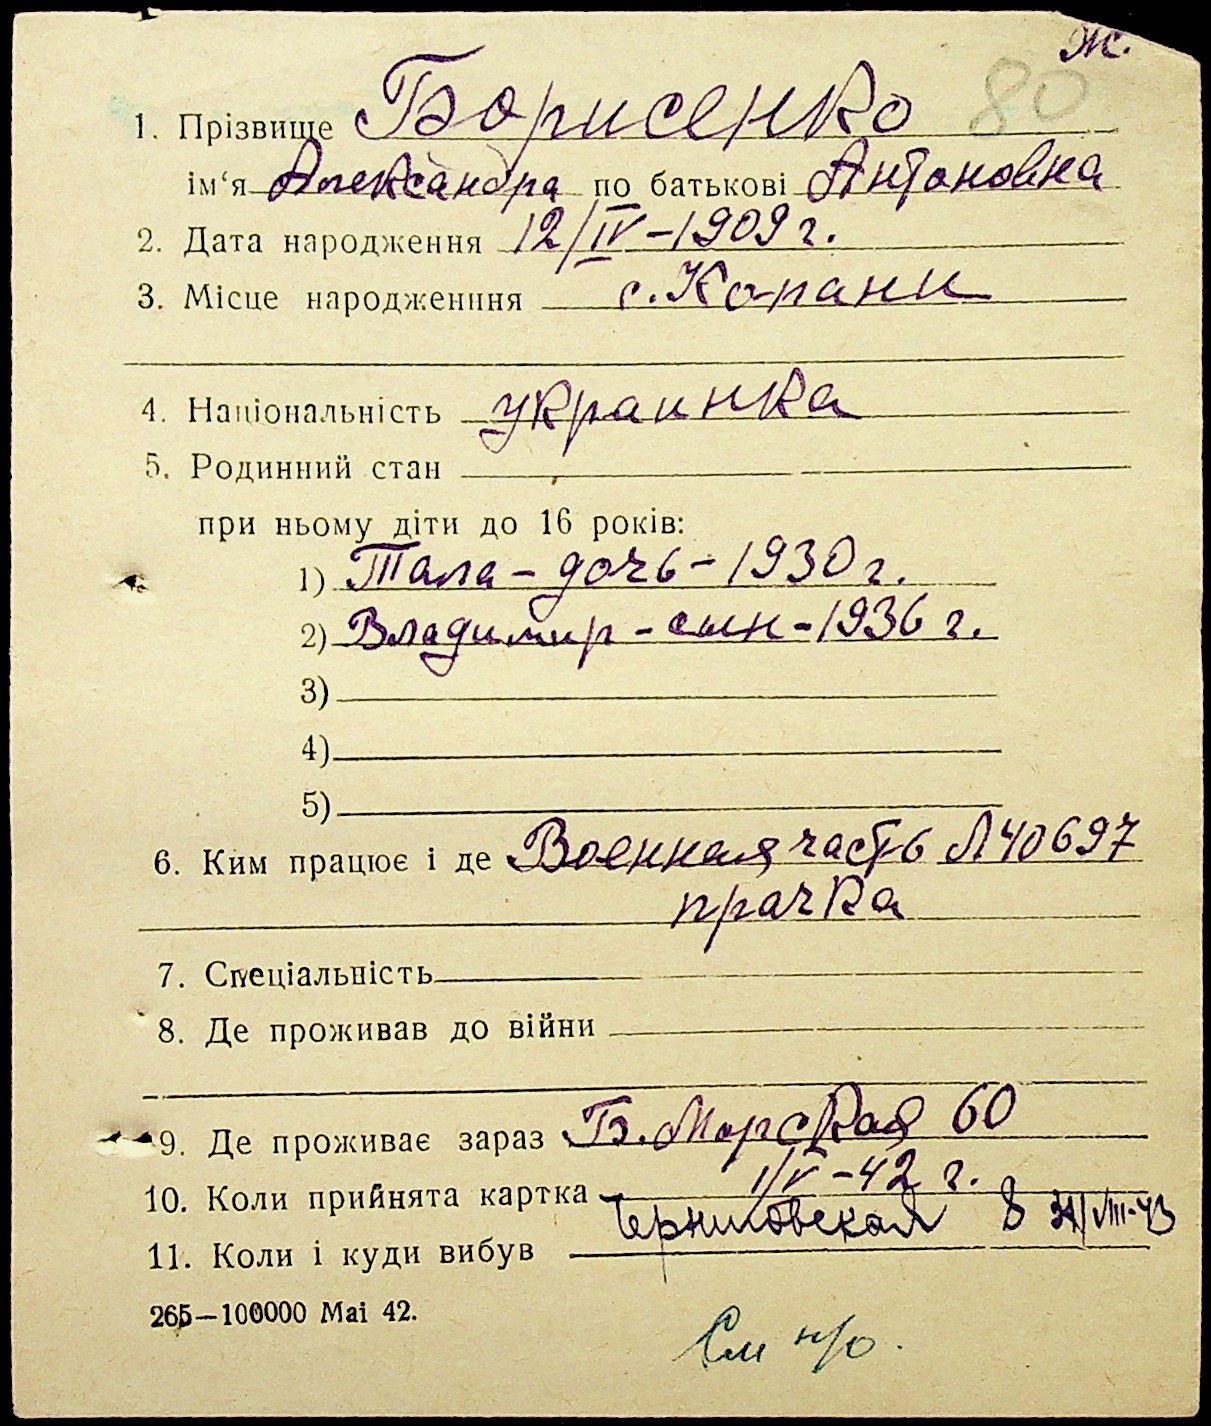 Ж.
80
1. Прізвище Борисенко
ім‘я Александра по батькові Антоновна
2. Дата народження 12/IV-1909 г.
3. Місце народженння с. Копани
4. Національність украинка
5. Родинний стан
при ньому діти до 16 років:
1) Тала - дочь - 1930 г.
2) Владимир - сын - 1936 г.
3)
4)
5)
6. Ким працює і де Военная часть Л40697
прачка
7. Спеціальність
8. Де проживав до війни
9. Де проживає зараз Б. Морская 60
10. Коли прийнята картка 1/V-42 г.
Черниговская 8 /VIII-43
11. Коли і куди вибув
265—100000 Mai 42.
См н/о.